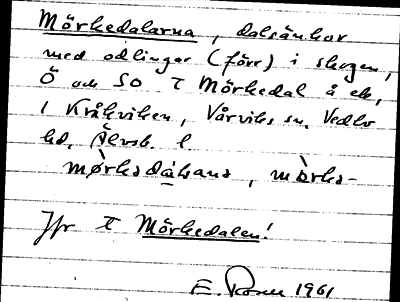 Mörkedalarna, dalsänkor
med odlingar (förr) i skogen,
Ö och SO T Mörkedal å ek,
i Kråkviken, Vårviks sn. Vedbo
hd, Älvsb. l
mørkedàḷana, mòrke-
Jfr T Mörkedalen!
E. 1961